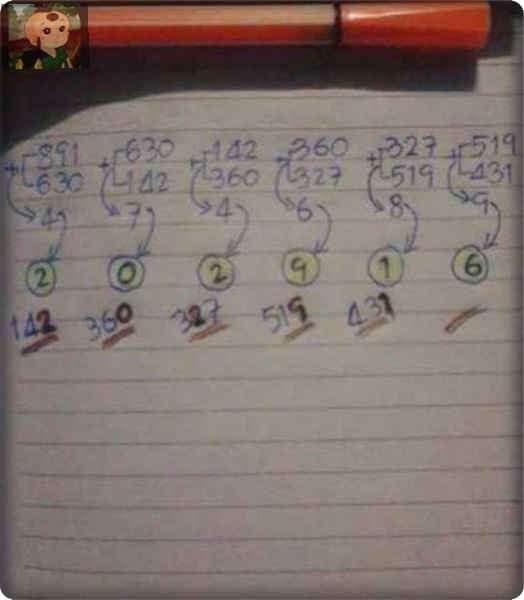 + 891 + 630 + 142 + 360 + 327 + 519
630 142 360 327 519 431
4 7 4 6 8 9
2 0 2 9 1 6
142 360 327 519 431